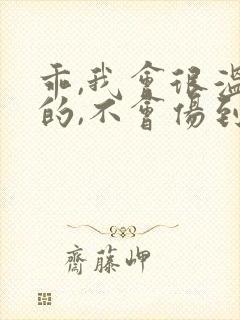 乖,我會很溫
的,不會傷到
齋藤岬